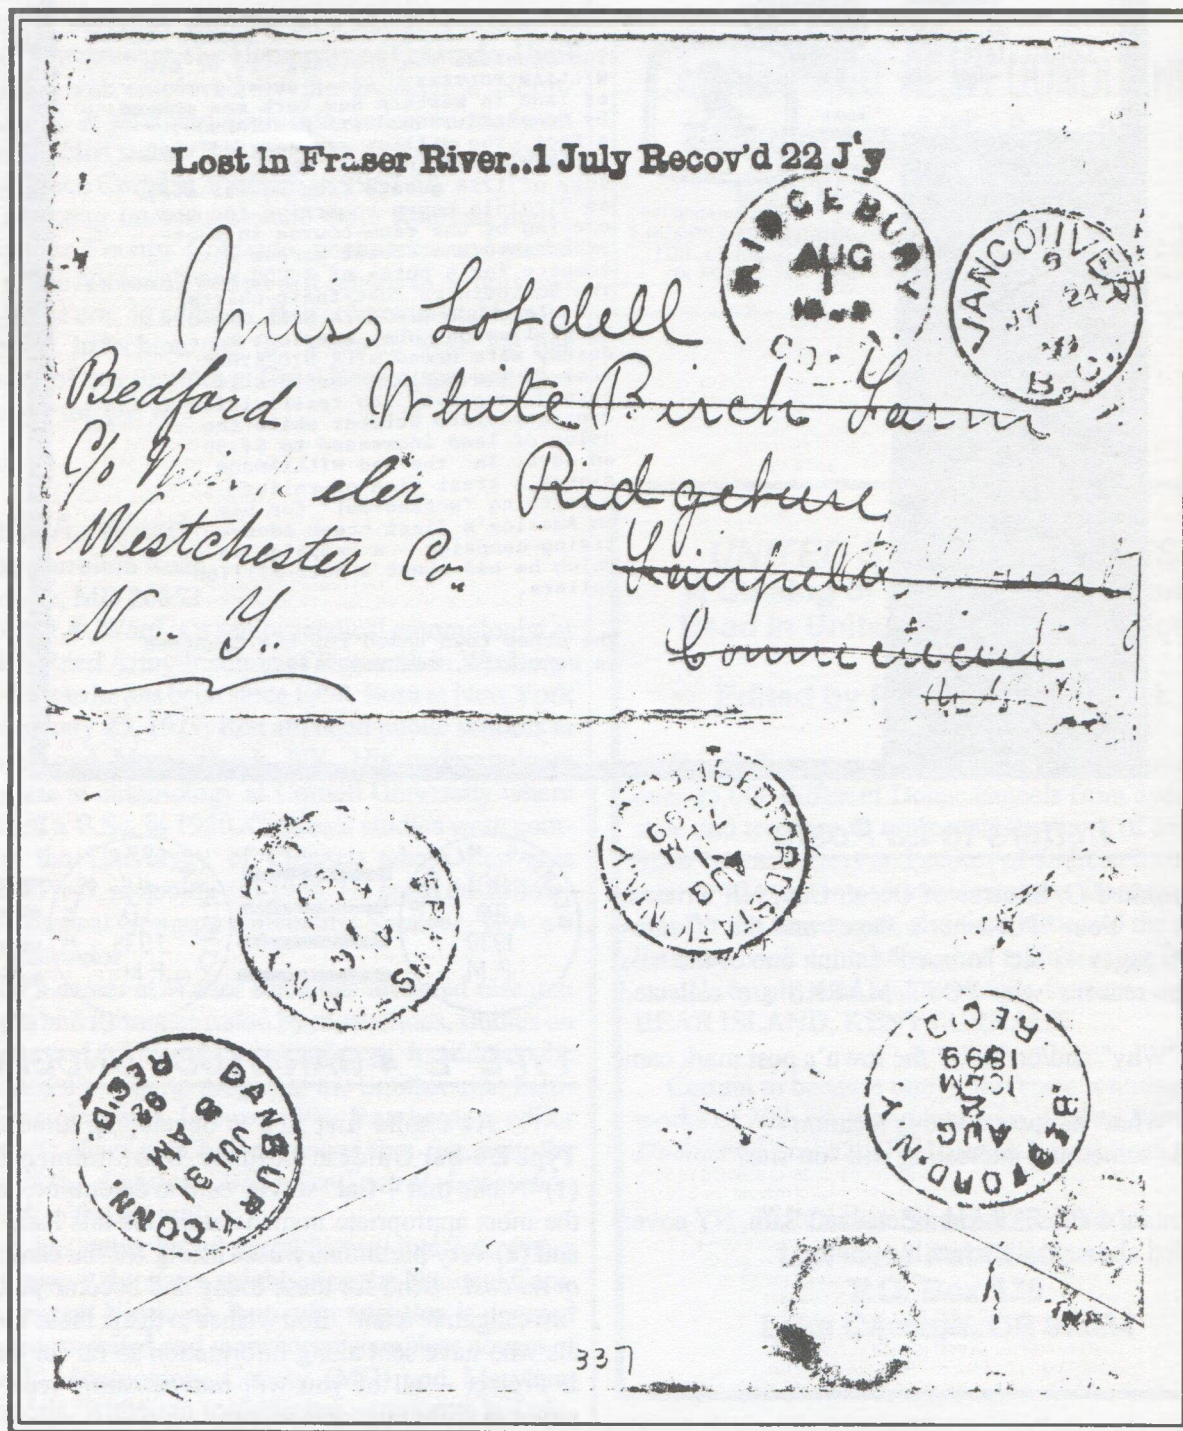 Lost In Fraser River..1 July Recov'd 22 J'y
RIDGEBURY
AUG
1
VANCOUVER
9
JY 24
B.C.
Miss Lobdell
Bedford White Birch Farm
C/o eler Ridgebury
Westchester Co. Fairfield
N.. Y. Connecticut
BEDFORD STATION N.Y.
AUG
N.Y.
DANBURY, CONN.
JUL 31
8 AM
REC'D.
BEDFORD, N.Y.
AUG
10 AM
1899
REC'D.
337